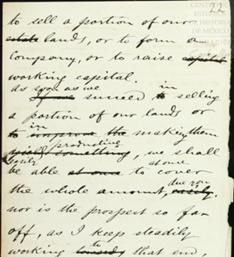 22
to sell a portion of our
estate lands, or to form a
Company, or to raise capital
working capital.
as soon as we in
If we succeed selling
a portion of our lands or
in
to improve the making them
yield something, productive, we shall
be able at once to cover
at once
the whole amount, due you
nor is the prospect so far
off, as I keep steadily
working to that end,